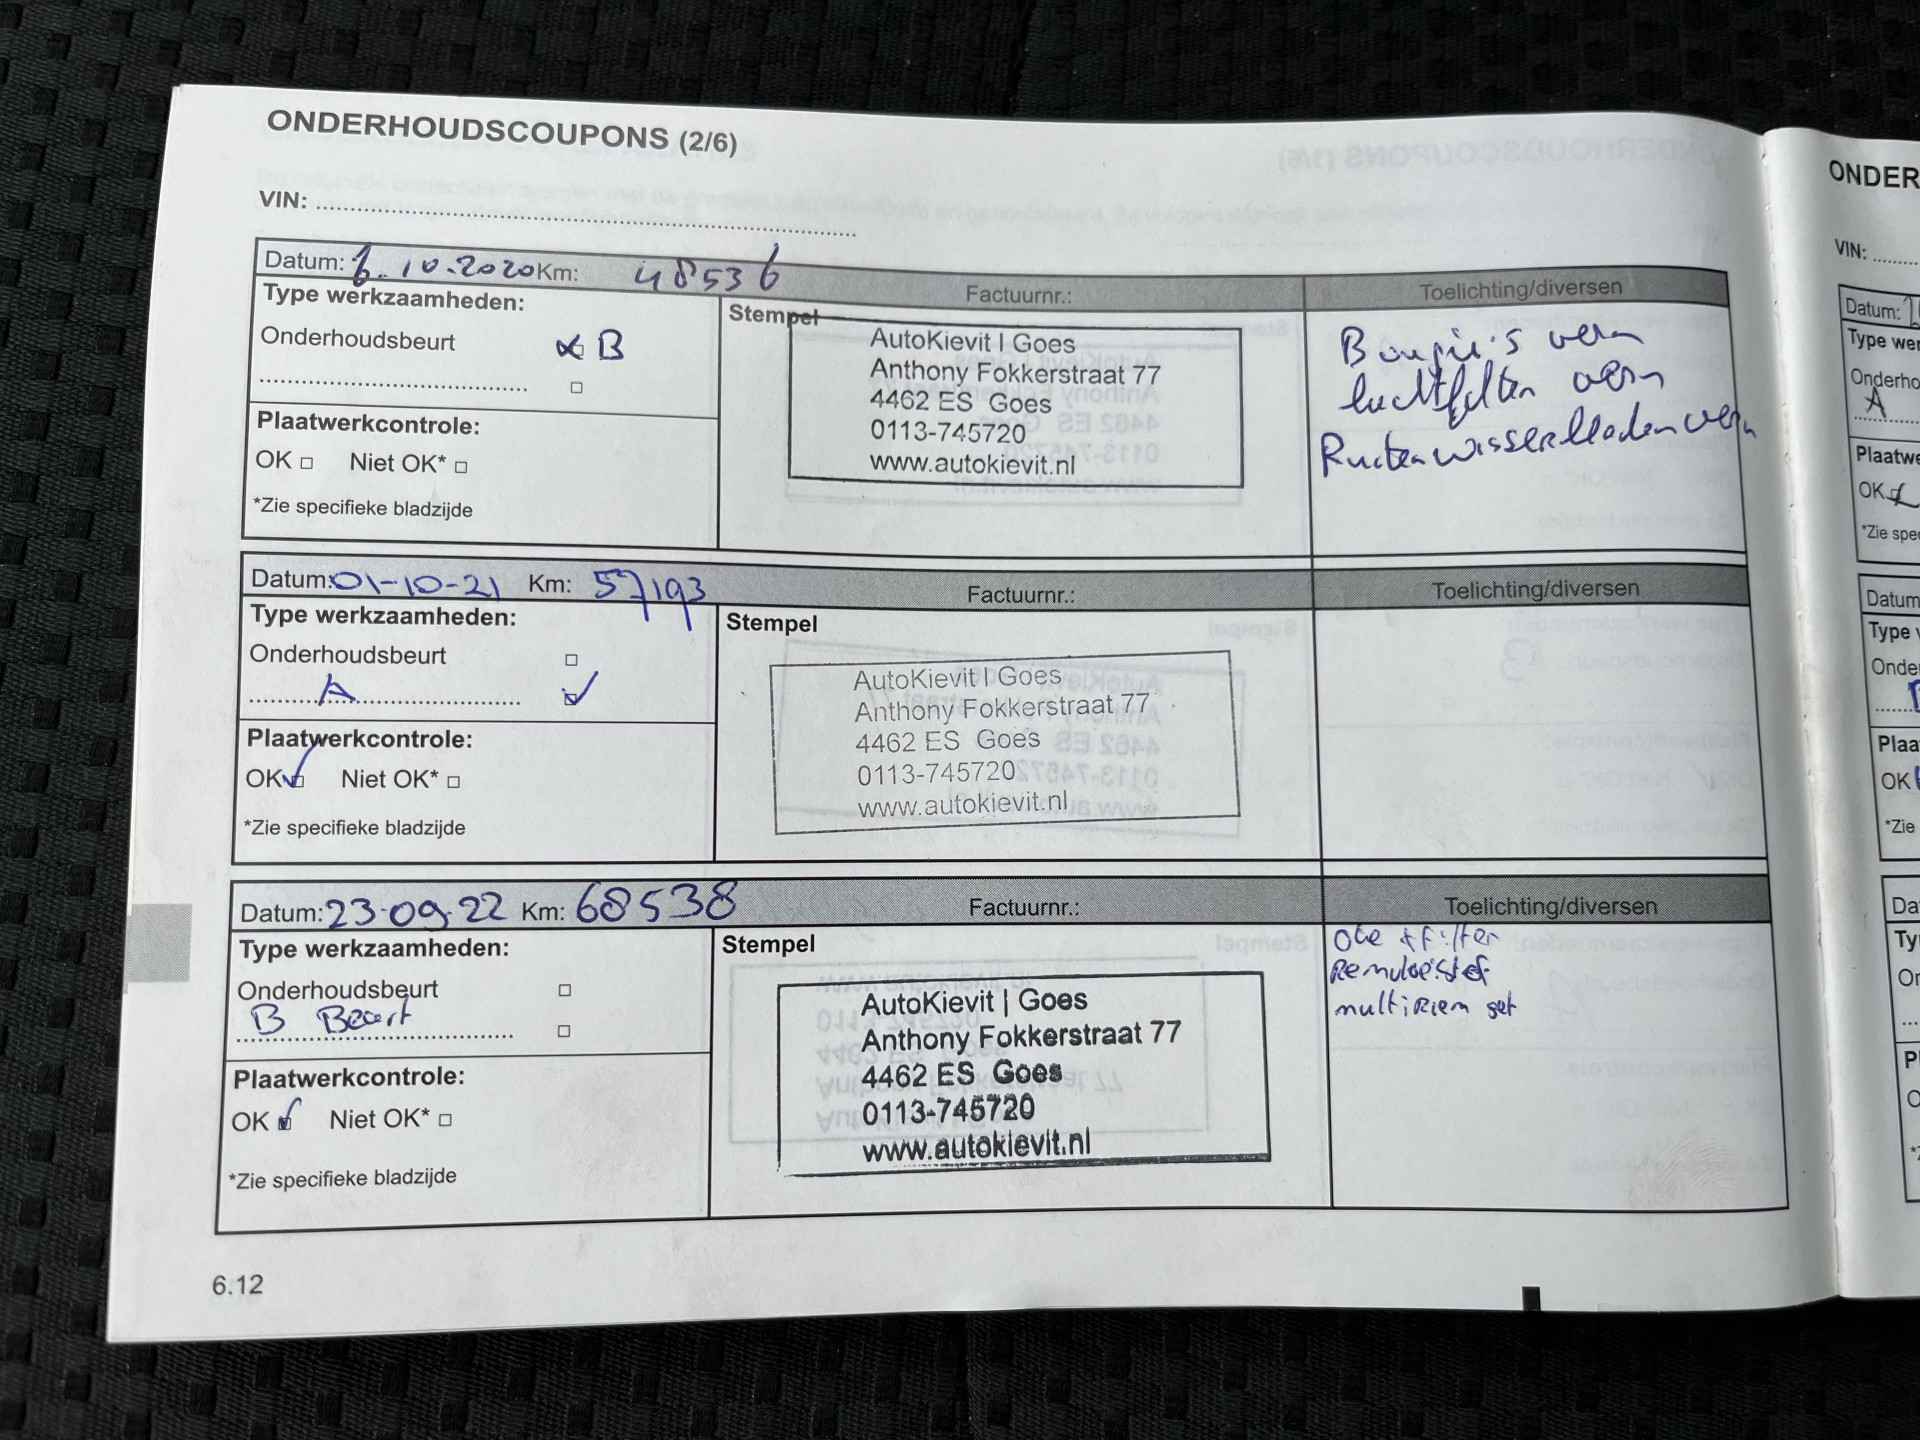 ONDERHOUDSCOUPONS (2/6)
VIN:
Datum: 6.10.2020 Km: 48536 Factuurnr.: Toelichting/diversen
Type werkzaamheden:
Onderhoudsbeurt B
Plaatwerkcontrole:
OK Niet OK*
*Zie specifieke bladzijde
Stempel
AutoKievit | Goes
Anthony Fokkerstraat 77
4462 ES Goes
0113-745720
www.autokievit.nl
Bougie's vern
luchtfilter vern
Ruitenwisserbladen vern
Datum: 01-10-21 Km: 57193 Factuurnr.: Toelichting/diversen
Type werkzaamheden:
Onderhoudsbeurt
A
Plaatwerkcontrole:
OK Niet OK*
*Zie specifieke bladzijde
Stempel
AutoKievit | Goes
Anthony Fokkerstraat 77
4462 ES Goes
0113-745720
www.autokievit.nl
Datum: 23-09-22 Km: 68538 Factuurnr.: Toelichting/diversen
Type werkzaamheden:
Onderhoudsbeurt
B Beurt
Plaatwerkcontrole:
OK Niet OK*
*Zie specifieke bladzijde
Stempel
AutoKievit | Goes
Anthony Fokkerstraat 77
4462 ES Goes
0113-745720
www.autokievit.nl
Olie + filter
Remvloeistof
multiriem set
6.12
ONDER
VIN:
Datum:
Type wer
Onderho
A
Plaatwe
OK
*Zie spec
Datum
Type
Onde
Plaa
OK
*Zie
Da
Ty
Or
P
O